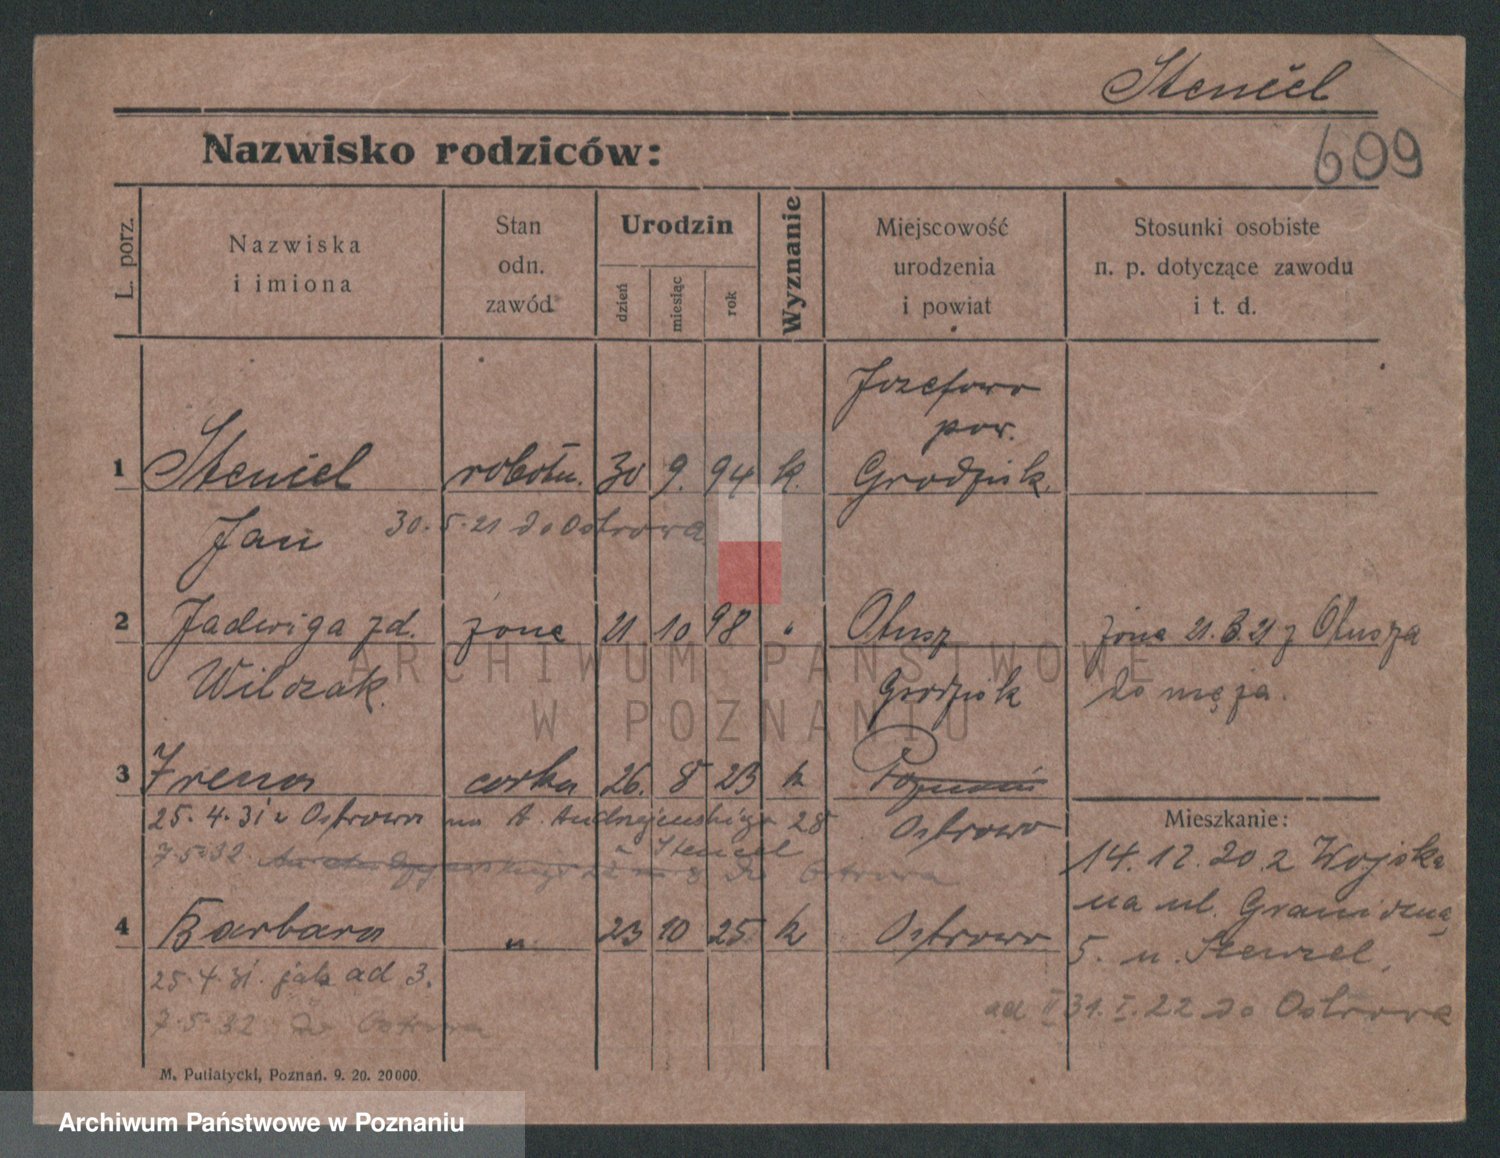 Stencel
609
Nazwisko rodziców:
L. porz.
Nazwiska
i imiona
Stan
odn.
zawód
Urodzin
dzień
miesiąc
rok
Wyznanie
Miejscowość
urodzenia
i powiat
Stosunki osobiste
n. p. dotyczące zawodu
i t. d.
Jozefowo
pow.
1 Stencel robotn. 30 9. 94 k. Grodzisk.
Jan 30.5.21 do Ostrowa
2 Jadwiga zd. żona 21 10 98 " Otusz żona 21.3.21 z Otusza
Wilczak. Grodzisk do męża.
3 Irena córka 26. 8 23 k Poznań
25.4.31 z Ostrowa na A. Andrzejewskiego 28 Ostrowo
Mieszkanie:
u Stencel
7.5.32 do Ostrowa
14.12.20 z Wojska
na ul. Graniczną
4 Barbara " 23 10 25 k Ostrowo
5. u. Stenzel.
25.4.31. jak ad 3.
ad II 31.I.22 do Ostrowa
7.5.32 do Ostrowa
M. Putiatycki, Poznań. 9. 20. 20000.
ARCHIWUM PAŃSTWOWE
W POZNANIU
Archiwum Państwowe w Poznaniu